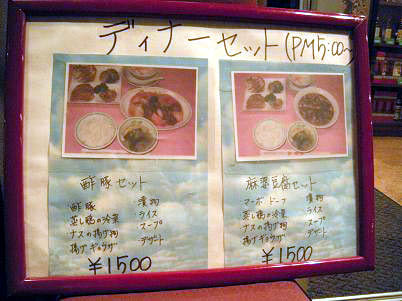 ディナーセット(PM5:00~)
酢豚セット
酢豚 漬物
蒸し鶏の冷菜 ライス
ナスの揚げ物 スープ
揚げギョウザ デザート
¥1500
麻婆豆腐セット
マーボードーフ 漬物
蒸し鶏の冷菜 ライス
ナスの揚げ物 スープ
揚げギョウザ デザート
¥1500